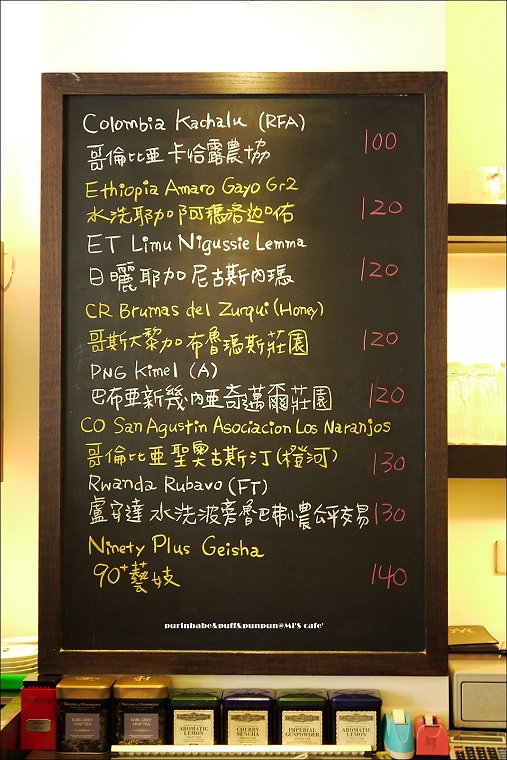 Colombia Kachalu (RFA)
哥倫比亞卡恰露農協 100
Ethiopia Amaro Gayo Gr2
水洗耶加阿瑪洛迦佑 120
ET Limu Nigussie Lemma
日曬耶加尼古斯內瑪 120
CR Brumas del Zurqui (Honey)
哥斯大黎加布魯瑪斯莊園 120
PNG Kimel (A)
巴布亞新幾內亞奇邁爾莊園 120
CO San Agustin Asociacion Los Naranjos
哥倫比亞聖奧古斯汀(橙河) 130
Rwanda Rubavo (FT)
盧安達 水洗波旁魯巴弗小農公平交易 130
Ninety Plus Geisha
90+藝妓 140
purinbabe&puff&punpun@MI'S cafe'
EARL GREY
LEAF TEA
EARL GREY
LEAF TEA
AROMATIC
LEMON
CHERRY
SENCHA
IMPERIAL
GUNPOWDER
AROMATIC
LEMON